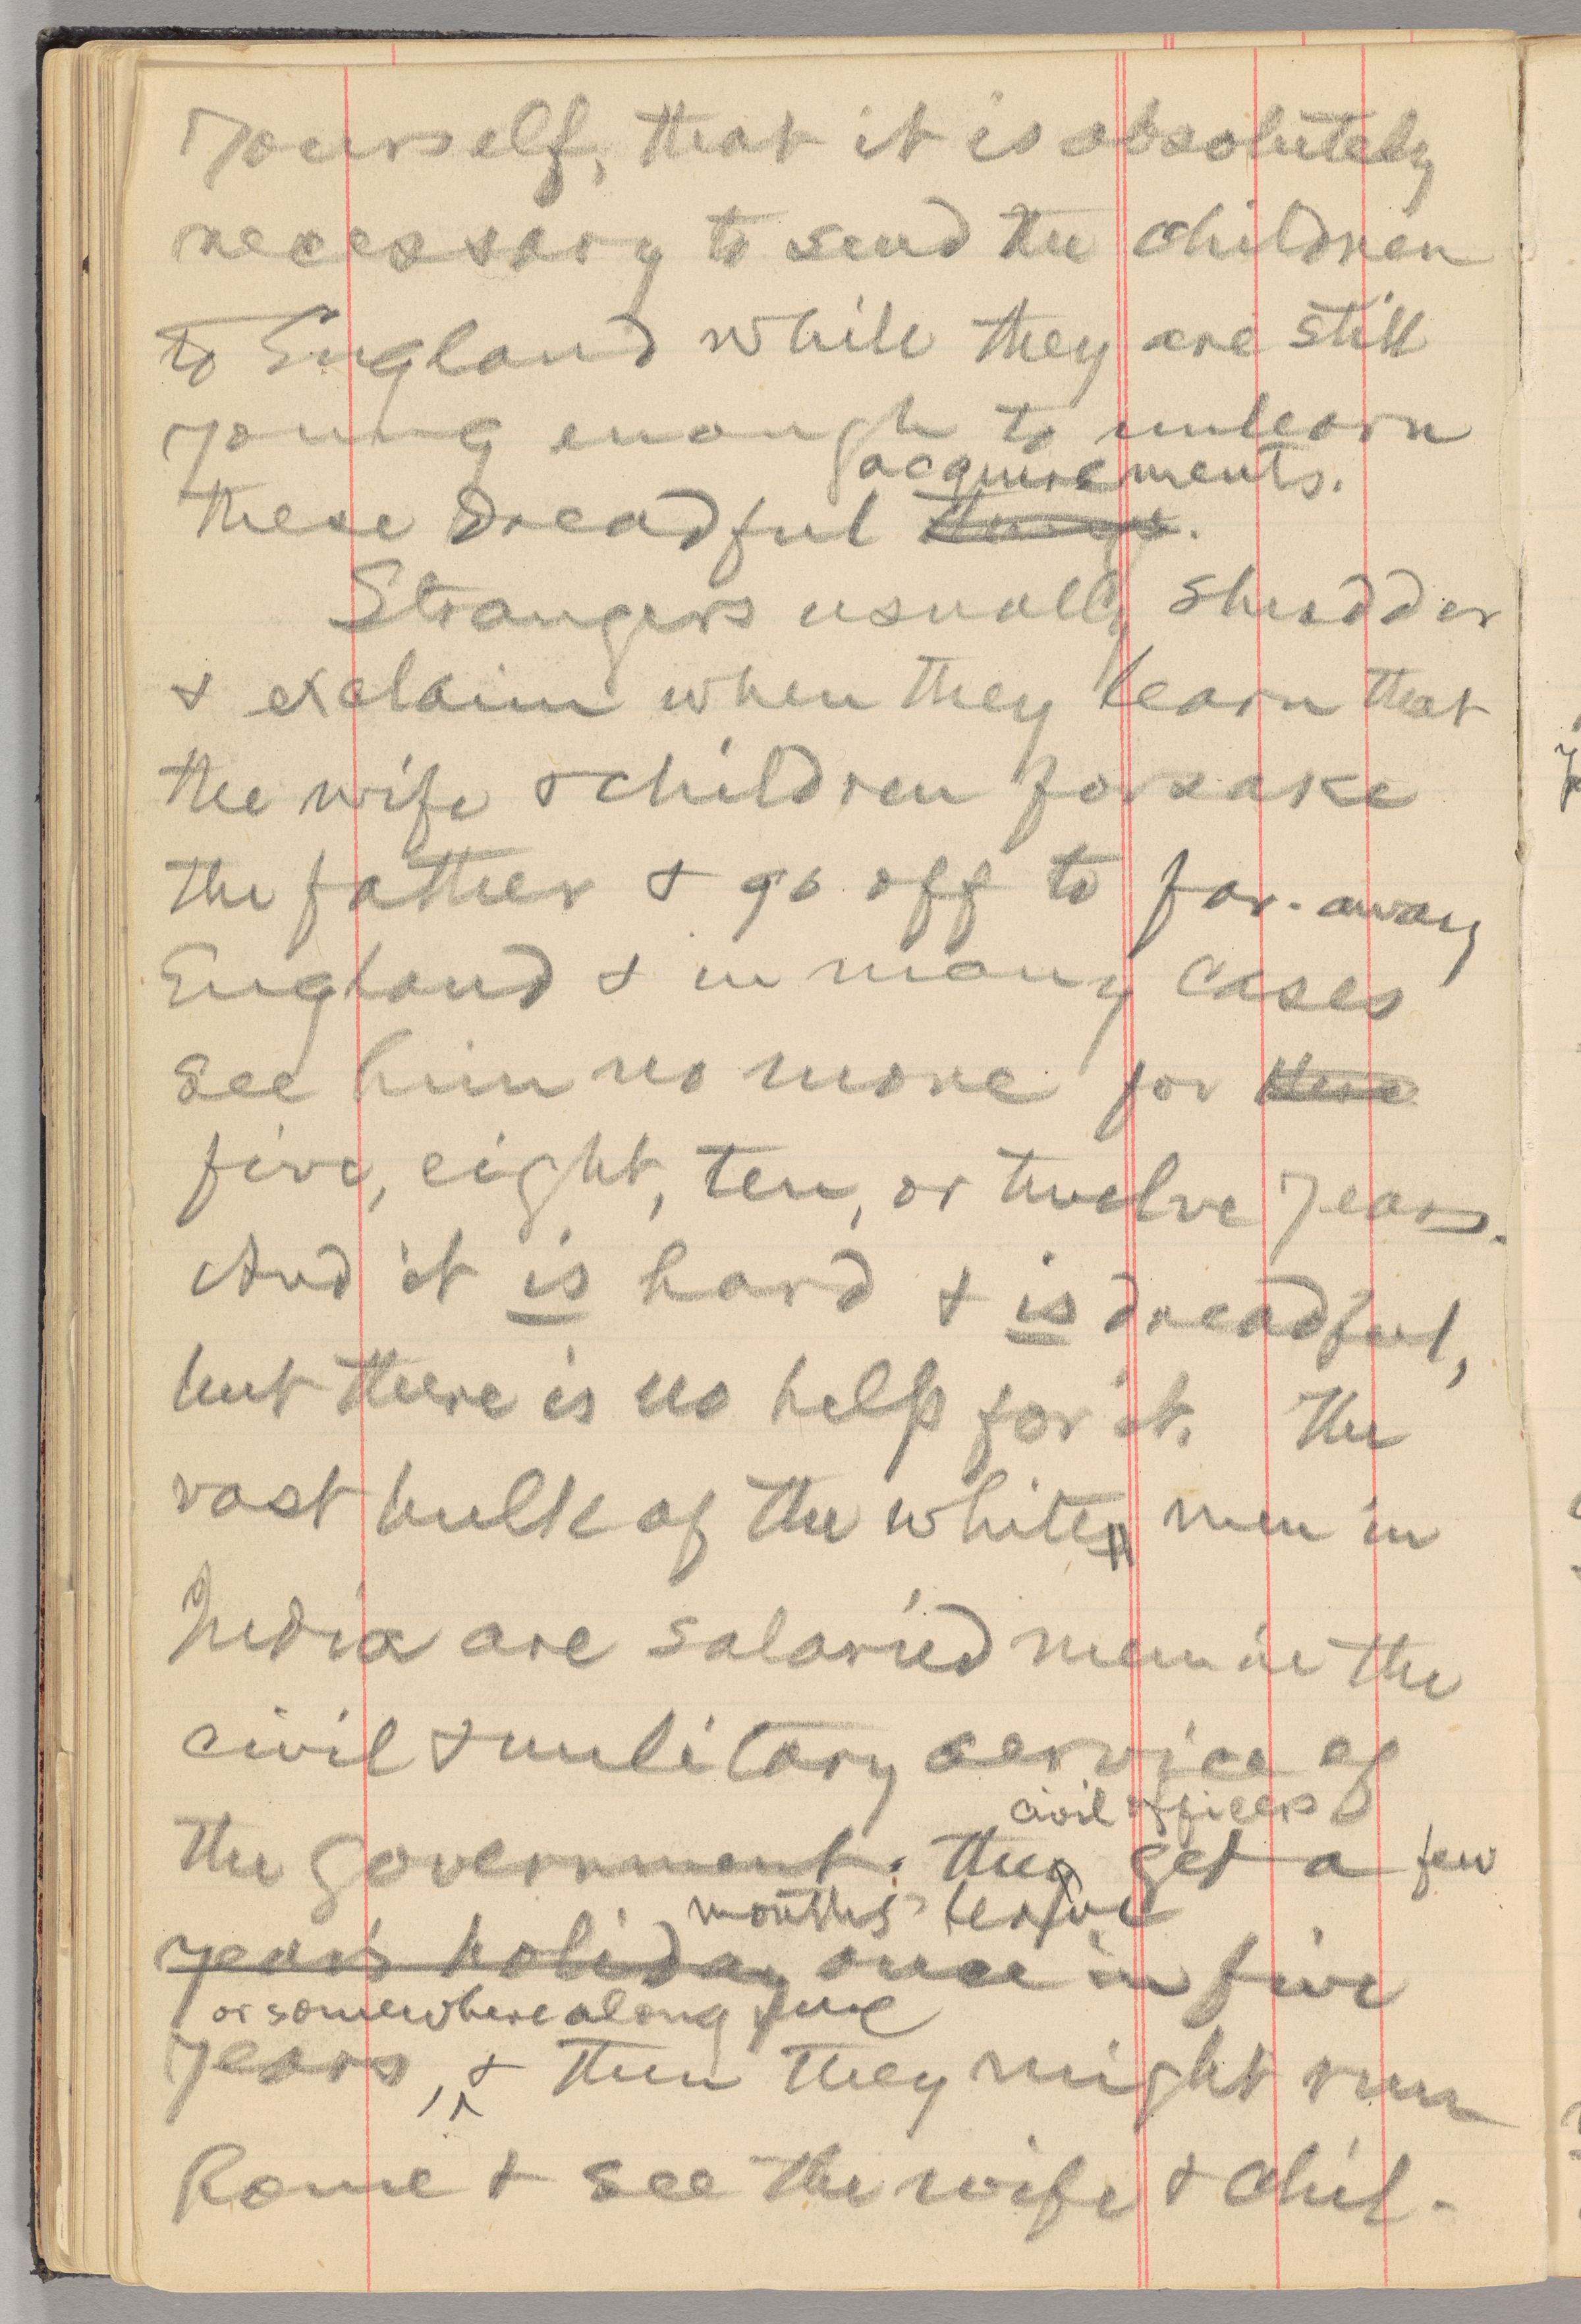 yourself, that it is absolutely
necessary to send the children
to England while they are still
young enough to unlearn
acquirements.
these dreadful things.
Strangers usually shudder
& exclaim when they learn that
the wife & children forsake
the father & go off to far-away
England & in many cases
see him no more for three
five, eight, ten, or twelve years.
And it is hard & is dreadful,
but there is no help for it. The
vast bulk of the white men in
India are salaried men in the
civil & military service of
civil officers
the government. The get a few
months' leave
year's holiday once in five
or somewhere along there
years, & then they might run
home & see the wife & chil-